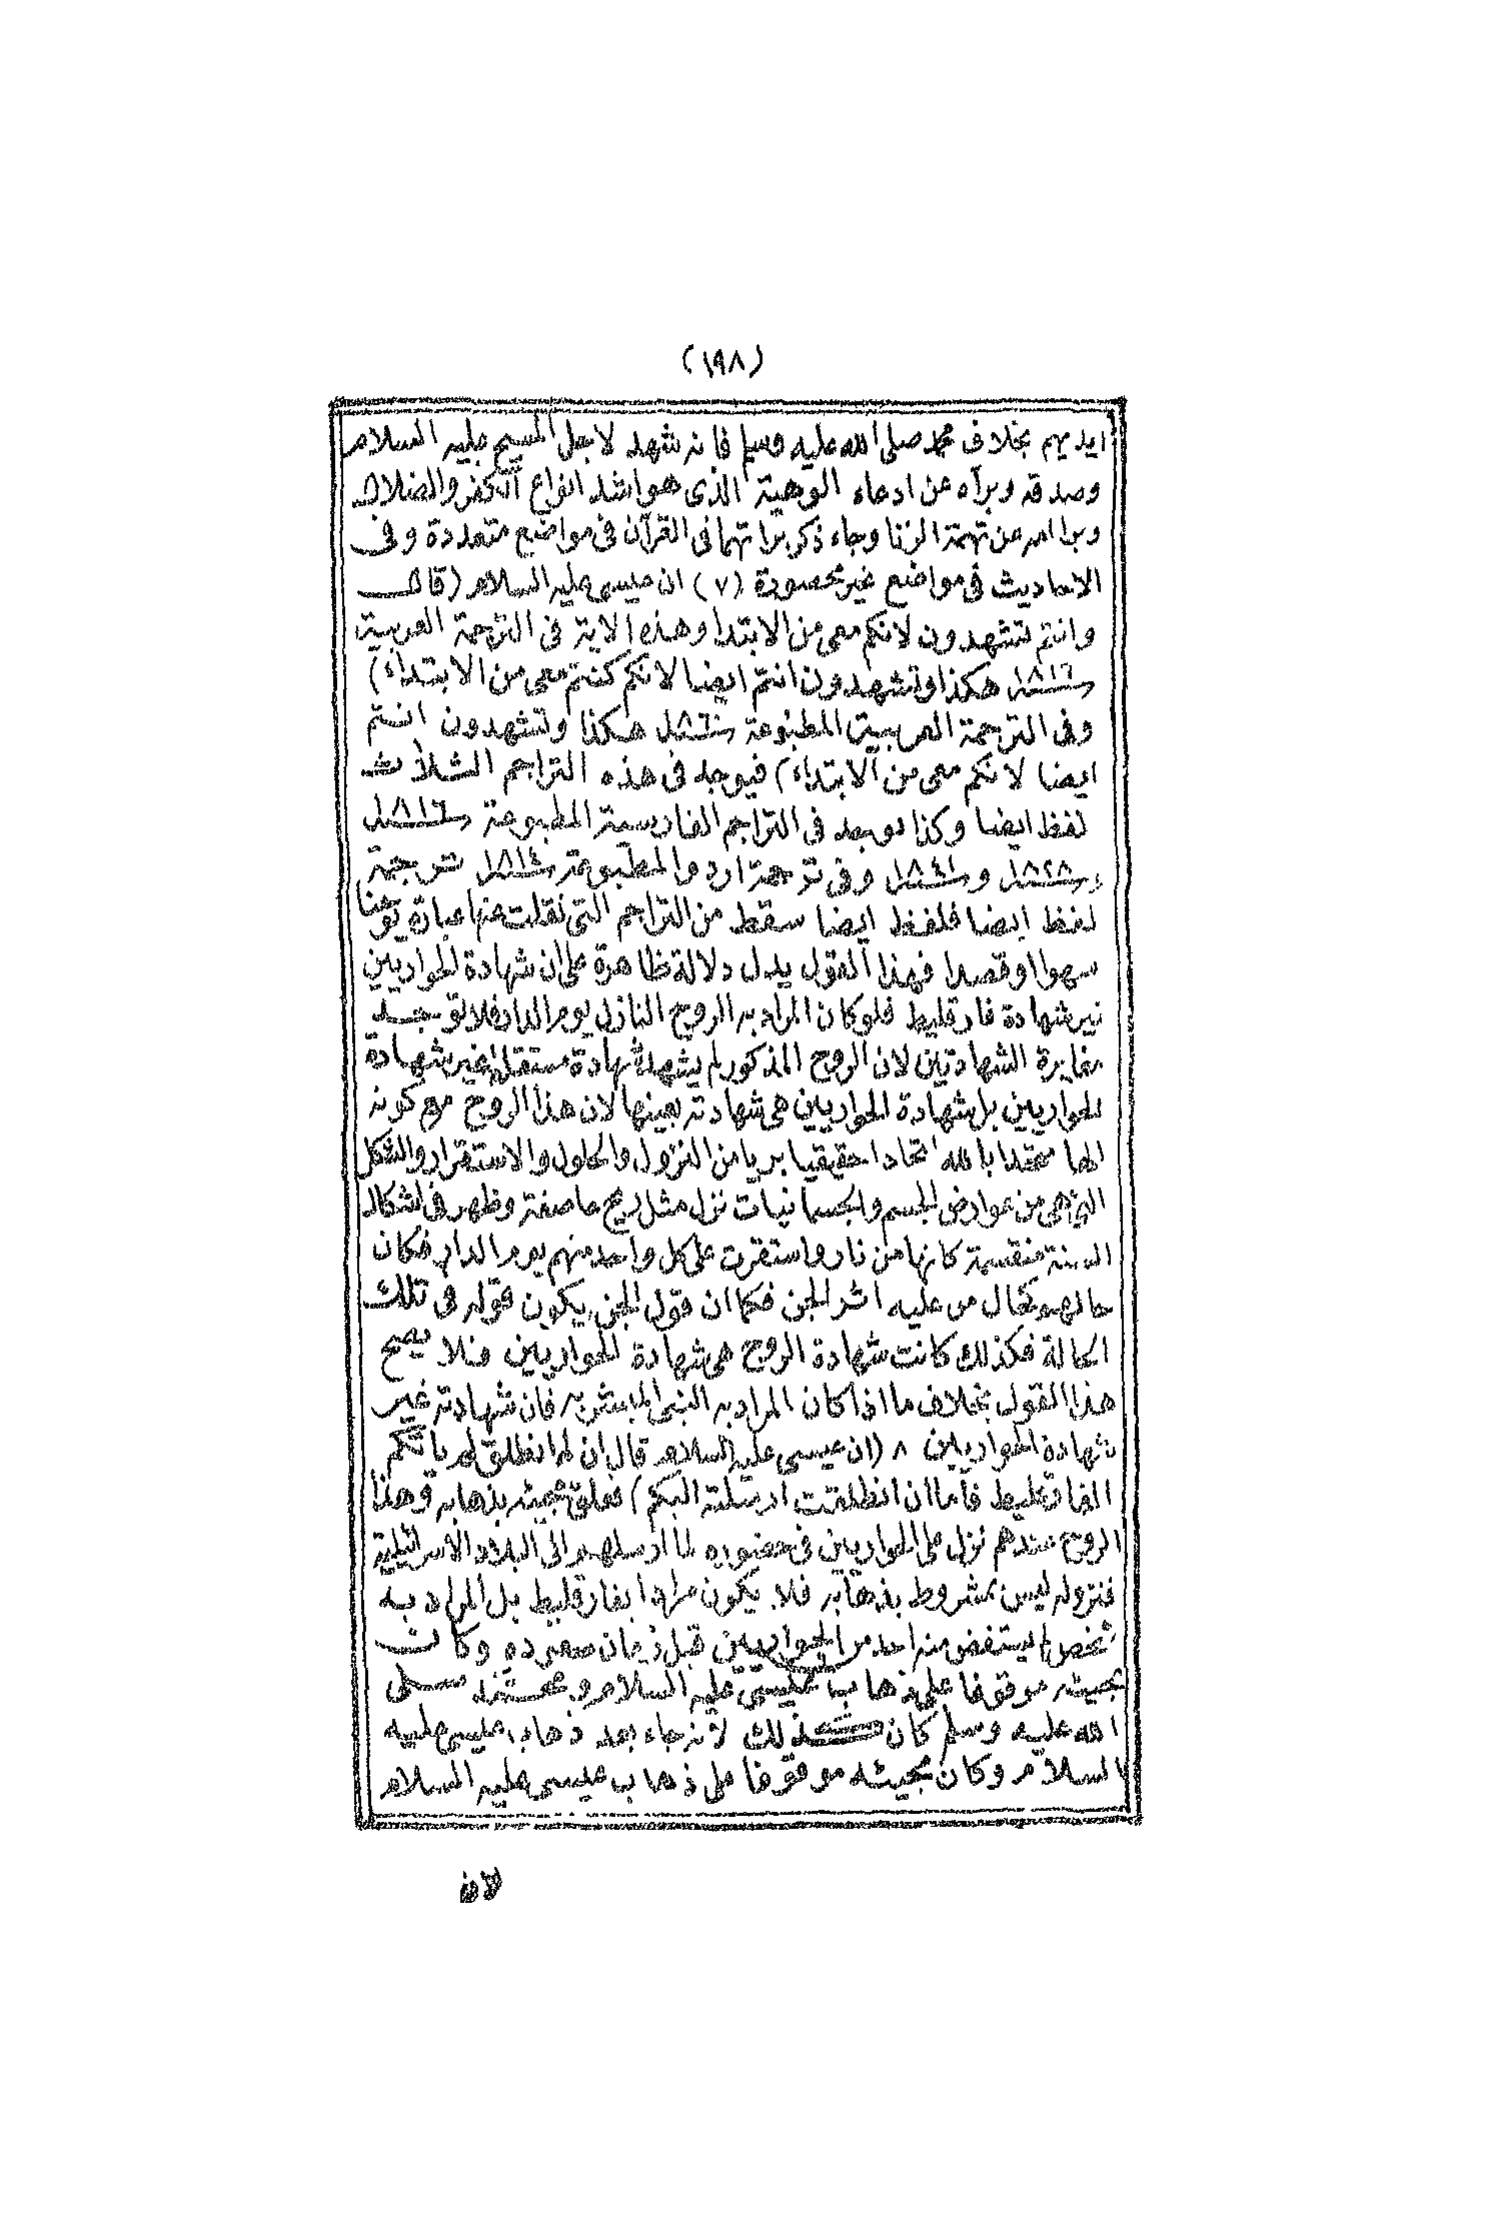 (١٩٨)
ايديهم بخلاف محمد صلى الله عليه وسلم فانه شهد لاجل المسيح عليه السلام
وصدقه وبرآه عن ادعاء الوهية الذى هو اشد انواع الكفر والضلال
وبرا امه عن تهمة الزنا وجاء ذكر براتهما فى القرآن فى مواضع متعددة وفى
الاحاديث فى مواضع غير محصورة (٧) ان عيسى عليه السلام (قال
وانتم تشهدون لانكم معى من الابتدا وهذه الاية فى الترجمة العربية
سنة ١٨١٦ هكذا وتشهدون انتم ايضا لانكم كنتم معى من الابتداء)
وفى الترجمة العربية المطبوعة سنة ١٨٦٠ هكذا وتشهدون انتم
ايضا لانكم معى من الابتداء) فيوجد فى هذه التراجم الثلاث
لفظ ايضا وكذا يوجد فى التراجم الفارسية المطبوعة سنة ١٨١٦
وسنة ١٨٢٨ وسنة ١٨٤١ وفى ترجمة اردو المطبوعة سنة ١٨١٤ ترجمة
لفظ ايضا فلفظ ايضا سقط من التراجم التى نقلت عنها عبارة يوحنا
سهوا او قصدا فهذا القول يدل دلالة ظاهرة على ان شهادة الحواريين
غير شهادة فارقليط فلو كان المراد به الروح النازل يوم الدار فلا توجد
مغايرة الشهادتين لان الروح المذكور لم يشهد شهادة مستقلة غير شهادة
الحواريين بل شهادة الحواريين هى شهادته بعينها لان هذا الروح مع كونه
الها متحدا بالله اتحادا حقيقيا بريا من النزول والحلول والاستقرار والشكل
التى هى من عوارض الجسم والجسمانيات نزل مثل ريح عاصفة وظهر فى اشكال
السنة منقسمة كانها من نار واستقرت على كل واحد منهم يوم الدار فكان
حالهم كحال من عليه اثر الجن فكما ان قول الجن يكون قوله فى تلك
الحالة فكذلك كانت شهادة الروح هى شهادة الحواريين فلا يصح
هذا القول بخلاف ما اذا كان المراد به النبى المبشر به فان شهادته غير
شهادة الحواريين ٨ (ان عيسى عليه السلام قال ان لم انطلق لم ياتكم
الفارقليط فأما ان انطلقت ارسلته اليكم) فعلق مجيئه بذهابه وهذا
الروح عندهم نزل على الحواريين فى حضوره لما ارسلهم الى البلاد الاسرائيلية
فنزوله ليس بمشروط بذهابه فلا يكون مرادا بفارقليط بل المراد به
شخص لم يستفض منه احد من الحواريين قبل زمان صعوده وكان
مجيئه موقوفا على ذهاب عيسى عليه السلام ومحمد صلى
الله عليه وسلم كان كذلك لأنه جاء بعد ذهاب عيسى عليه
السلام وكان مجيئه موقوفا على ذهاب عيسى عليه السلام
لان